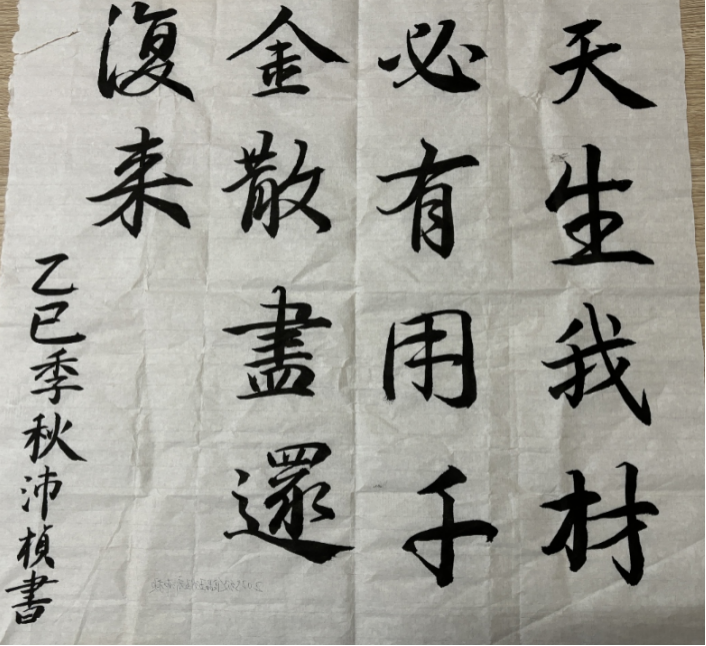 天生我材
必有用千
金散盡還
復来
乙巳季秋沛楨書